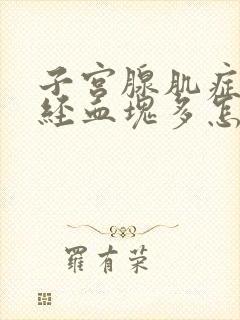 子宫腺肌症
经血块多怎
羅有荣